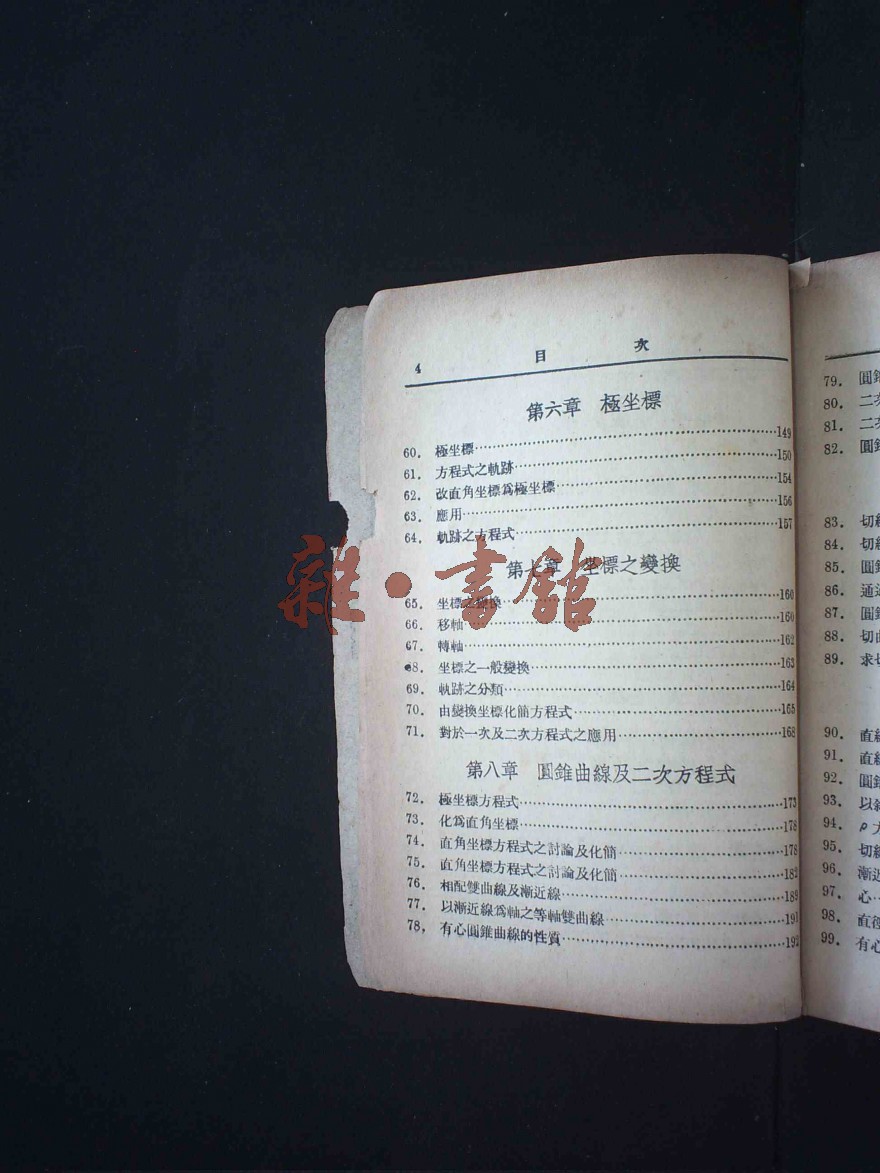 4 目 次
第六章 極坐標
60. 極坐標……149
61. 方程式之軌跡……150
62. 改直角坐標爲極坐標……154
63. 應用……156
64. 軌跡之方程式……157
第七章 坐標之變換
65. 坐標之變換……160
66. 移軸……160
67. 轉軸……162
68. 坐標之一般變換……163
69. 軌跡之分類……164
70. 由變換坐標化簡方程式……165
71. 對於一次及二次方程式之應用……168
第八章 圓錐曲線及二次方程式
72. 極坐標方程式……173
73. 化爲直角坐標……178
74. 直角坐標方程式之討論及化簡……178
75. 直角坐標方程式之討論及化簡……182
76. 相配雙曲線及漸近線……189
77. 以漸近線爲軸之等軸雙曲線……191
78, 有心圓錐曲線的性質……192
雜·書館
79. 圓
80. 二次
81. 二
82. 圓
83. 切
84. 切
85. 圓
86. 通
87. 圓
88. 切
89. 求
90. 直
91. 直
92. 圓
93. 以
94. ρ
95. 切
96. 漸近
97. 心…
98. 直
99. 有心